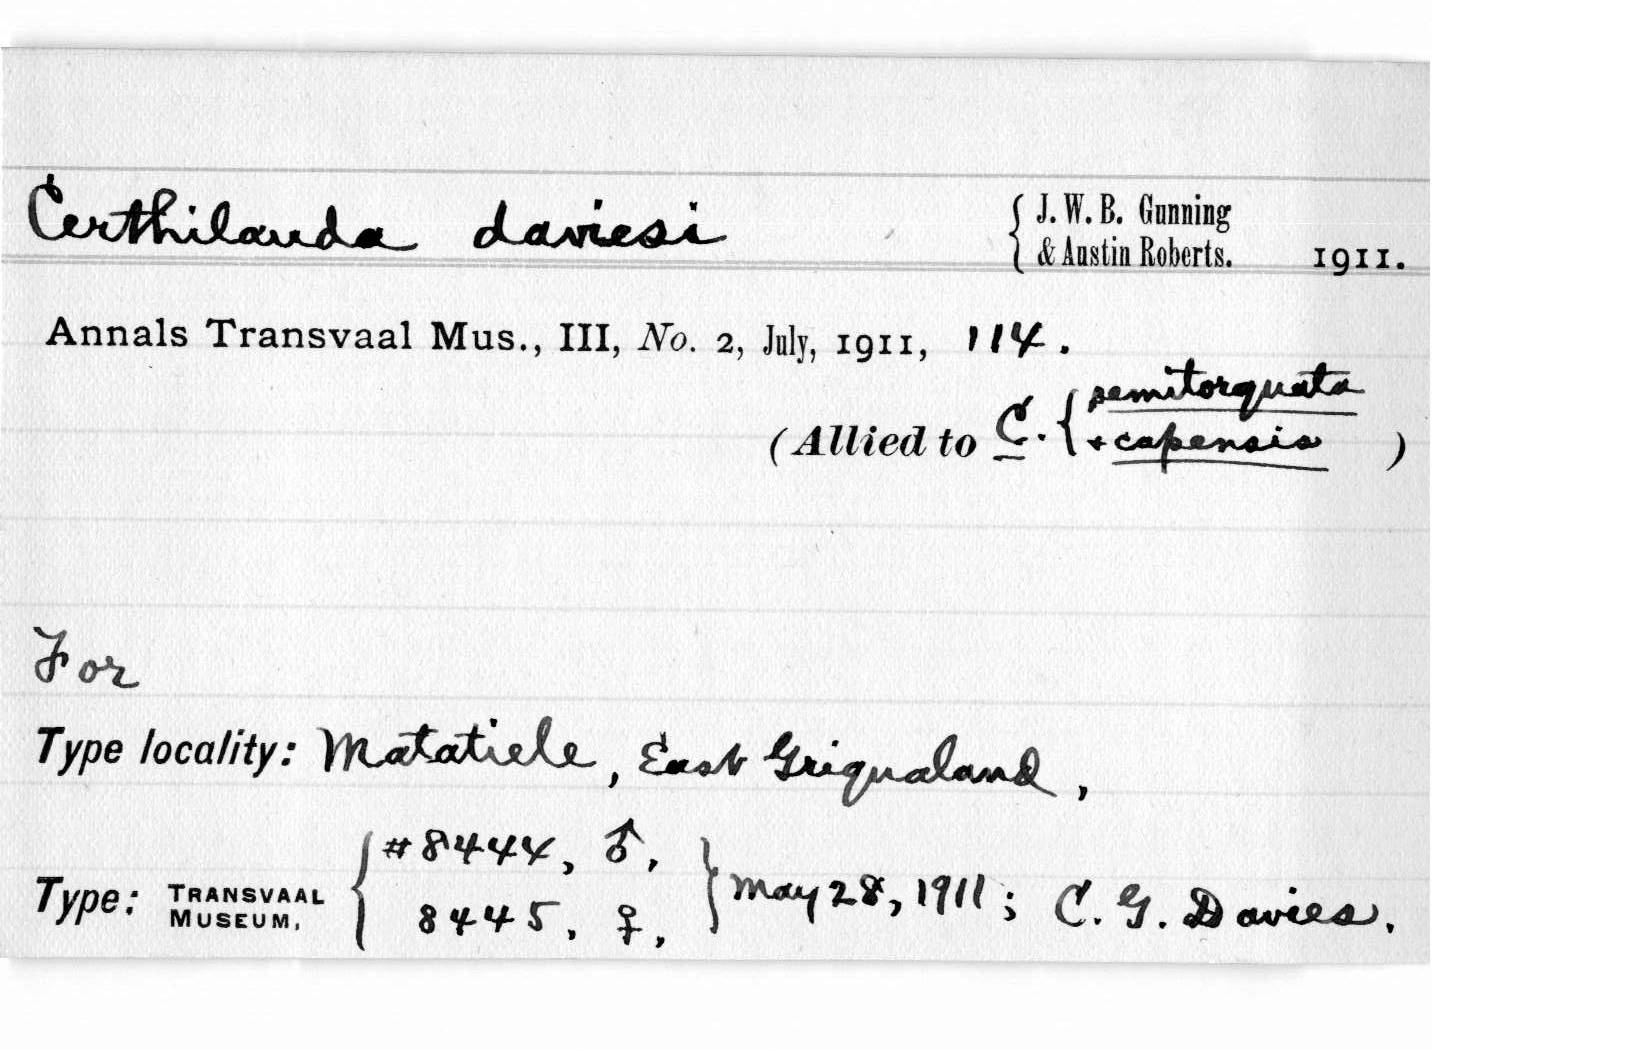 Certhilauda daviesi { J. W. B. Gunning & Austin Roberts. 1911.
Annals Transvaal Mus., III, No. 2, July, 1911, 114.
(Allied to C. { semitorquata + capensis )
For
Type locality: Matatiele, East Griqualand,
Type: TRANSVAAL MUSEUM, { #8444, ♂, 8445, ♀, } May 28, 1911; C. G. Davies.